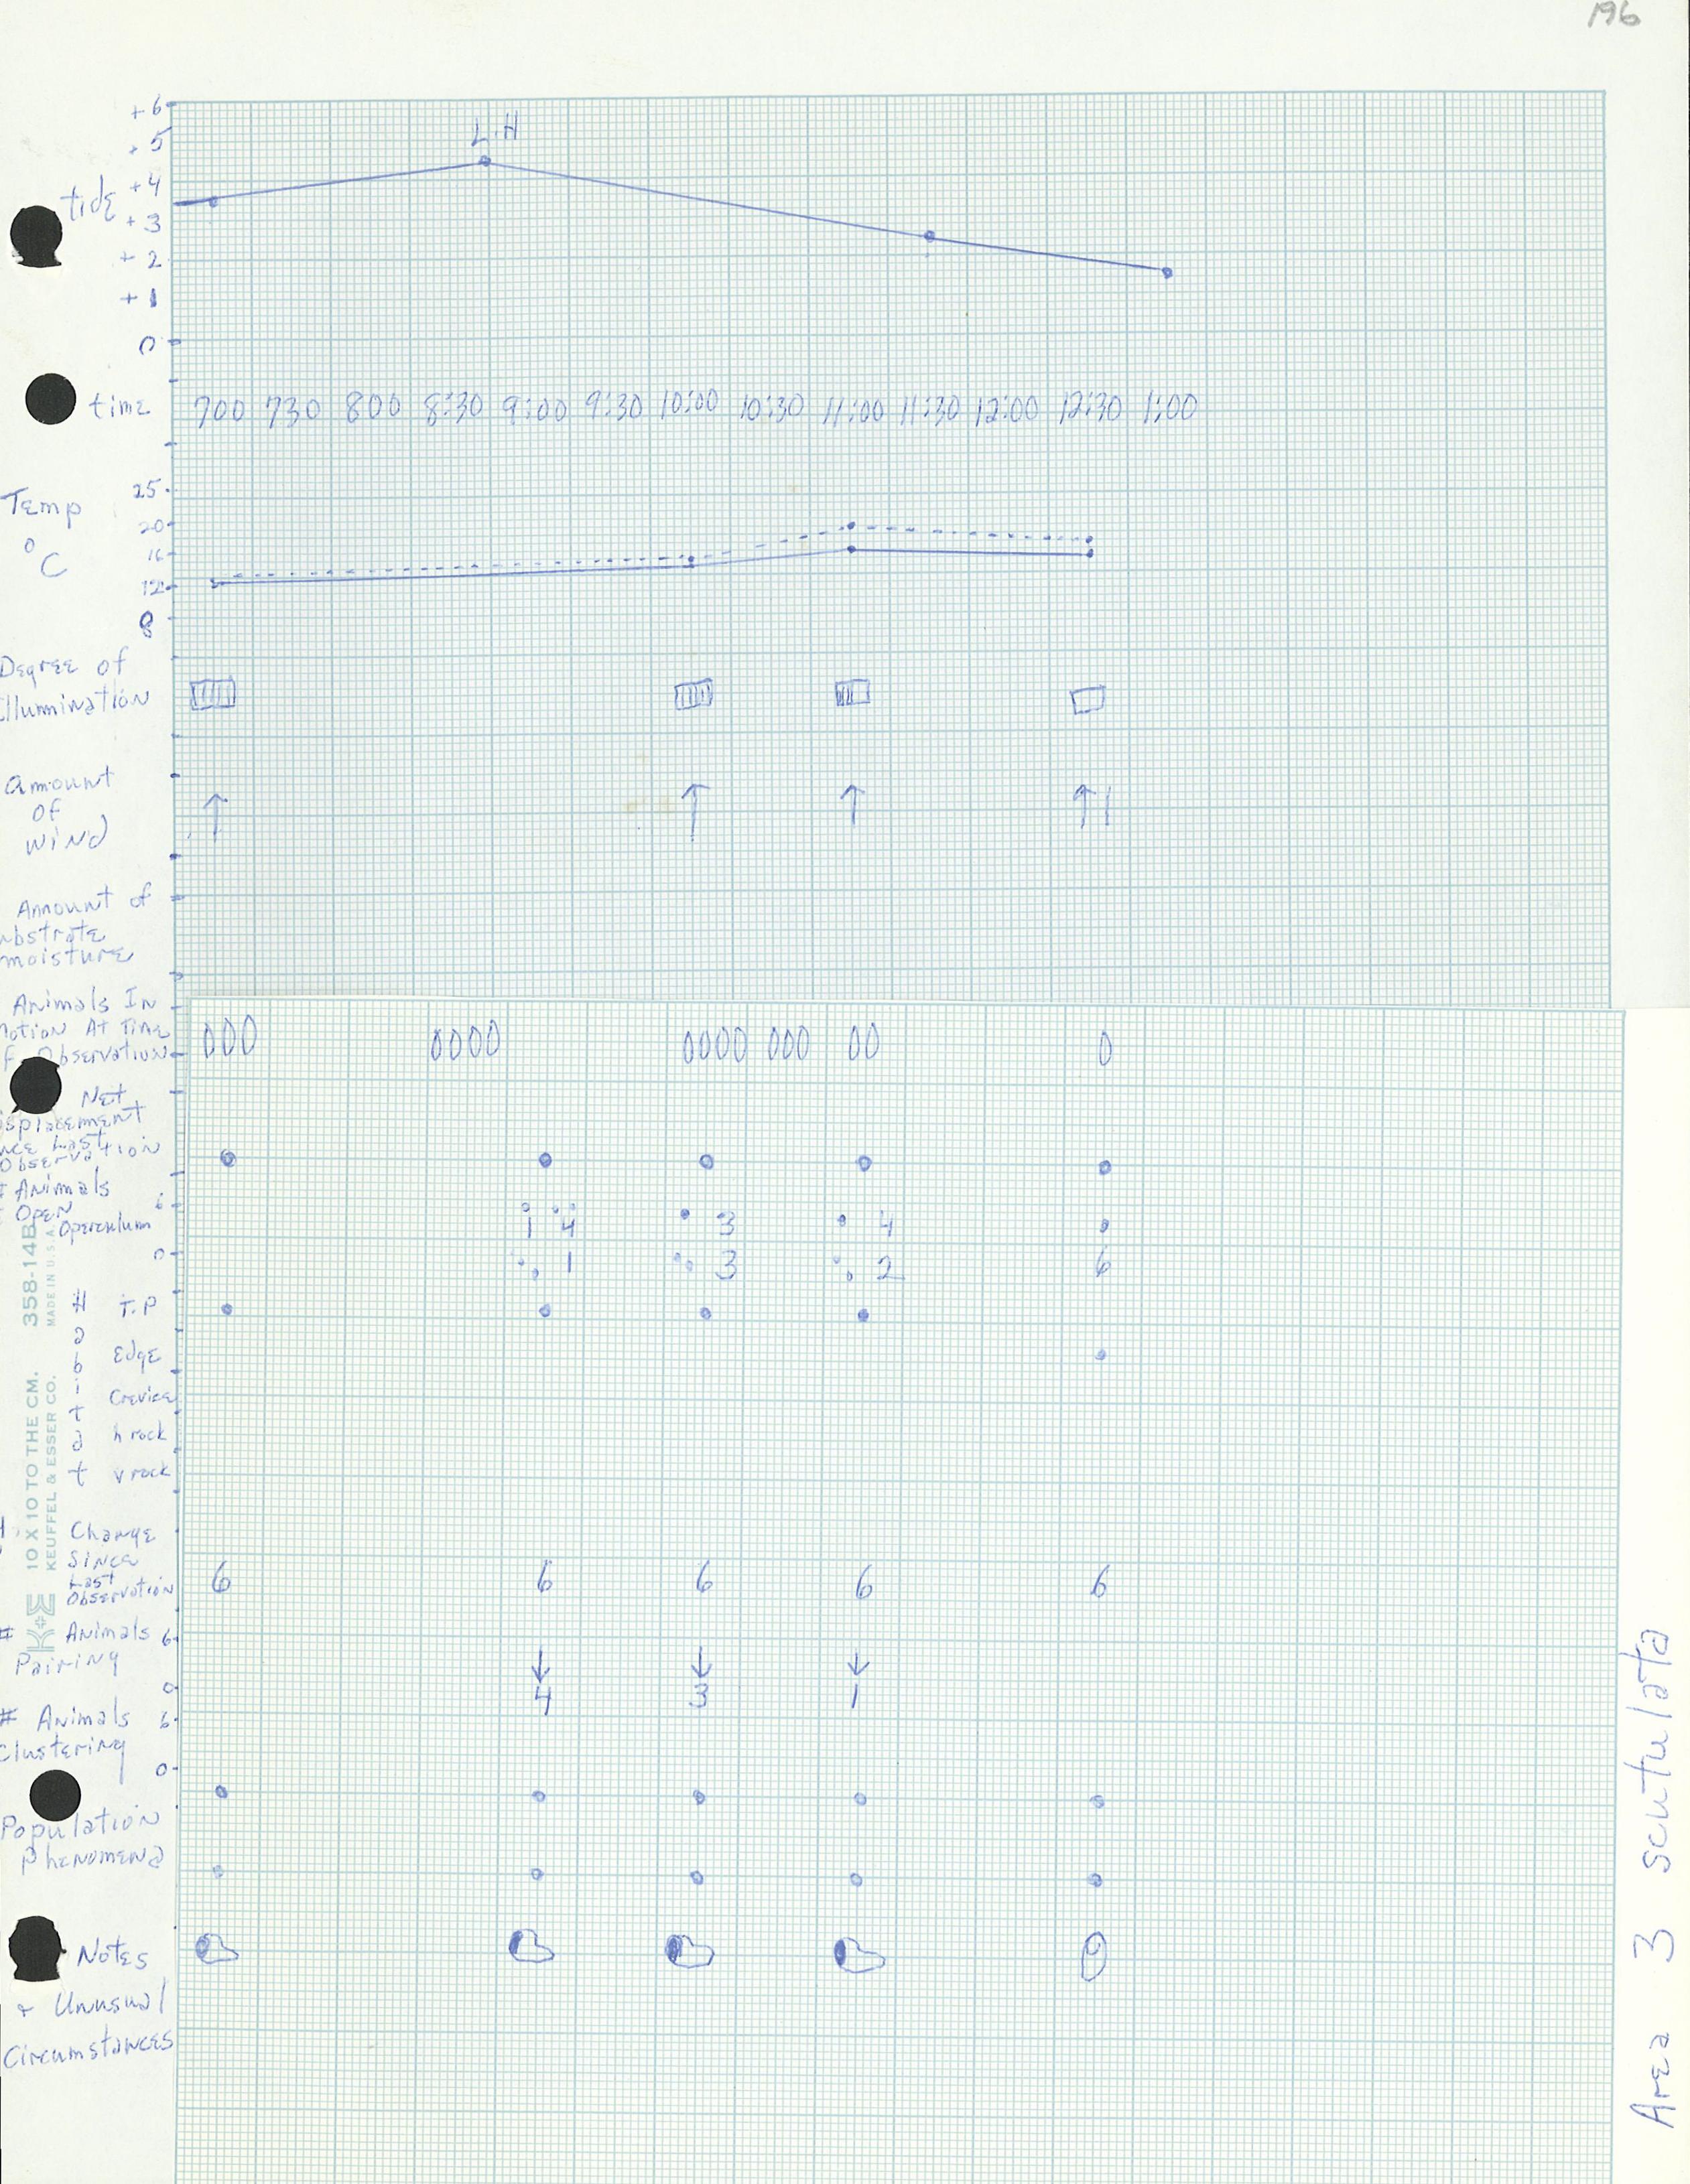 196
+6
+5
L.H
tide
+4
+3
+2
+1
0
time 700 730 800 8:30 9:00 9:30 10:00 10:30 11:00 11:30 12:00 12:30 1:00
25
Temp 20
°C 16
12
8
Degree of
Illumination
Amount
of
wind
Amount of
ubstrate
moisture
Animals In
Motion At Time
f Observation 000 0000 0000 000 00 0
Net
isplacement
nce Last
Observation
# Animals
Open 6
Operculum 1 4 3 4
0 1 3 2 6
# T.P
a
b Edge
i Crevice
t
a h rock
t v rock
Change
Since
Last
Observation 6 6 6 6 6
# Animals 6
Pairing
0 4 3 1
# Animals 6
Clustering
0
Population
Phenomena
Notes
+ Unusual
Circumstances
K+E 10 X 10 TO THE CM. 358-14B
KEUFFEL & ESSER CO. MADE IN U.S.A.
Area 3 scutulata